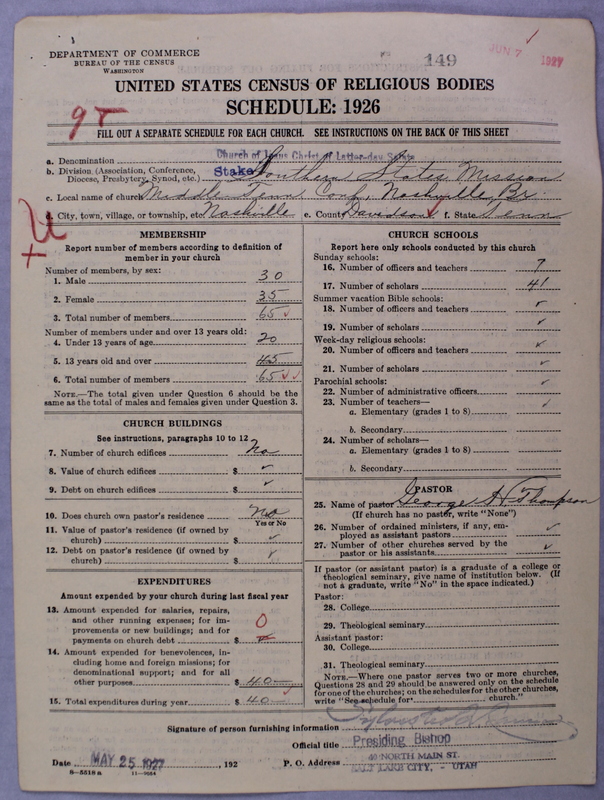 DEPARTMENT OF COMMERCE
BUREAU OF THE CENSUS
WASHINGTON
149
JUN 7 1927
UNITED STATES CENSUS OF RELIGIOUS BODIES
SCHEDULE: 1926
FILL OUT A SEPARATE SCHEDULE FOR EACH CHURCH. SEE INSTRUCTIONS ON THE BACK OF THIS SHEET
a. Denomination Church of Jesus Christ of Latter-day Saints
b. Division (Association, Conference, Diocese, Presbytery, Synod, etc.) Stake Southern States Mission
c. Local name of church Middle Tenn Conf, Nashville Br
d. City, town, village, or township, etc. Nashville e. County Davidson f. State Tenn
MEMBERSHIP
Report number of members according to definition of
member in your church
Number of members, by sex:
1. Male 30
2. Female 35
3. Total number of members 65
Number of members under and over 13 years old:
4. Under 13 years of age 20
5. 13 years old and over 45
6. Total number of members 65
NOTE.—The total given under Question 6 should be
same as the total of males and females given under Question 3.
CHURCH BUILDINGS
See instructions, paragraphs 10 to 12
7. Number of church edifices No
8. Value of church edifices $
9. Debt on church edifices $
10. Does church own pastor's residence No
Yes or No
11. Value of pastor's residence (if owned by
church) $
12. Debt on pastor's residence (if owned by
church) $
EXPENDITURES
Amount expended by your church during last fiscal year
13. Amount expended for salaries, repairs,
and other running expenses; for im-
provements or new buildings; and for
payments on church debt $ 0
14. Amount expended for benevolences, in-
cluding home and foreign missions; for
denominational support; and for all
other purposes $ 40
15. Total expenditures during year $ 40
CHURCH SCHOOLS
Report here only schools conducted by this church
Sunday schools:
16. Number of officers and teachers 7
17. Number of scholars 41
Summer vacation Bible schools:
18. Number of officers and teachers
19. Number of scholars
Week-day religious schools:
20. Number of officers and teachers
21. Number of scholars
Parochial schools:
22. Number of administrative officers
23. Number of teachers—
a. Elementary (grades 1 to 8)
b. Secondary
24. Number of scholars—
a. Elementary (grades 1 to 8)
b. Secondary
PASTOR
25. Name of pastor George H Thompson
(If church has no pastor, write "None")
26. Number of ordained ministers, if any, em-
ployed as assistant pastors
27. Number of other churches served by the
pastor or his assistants
If pastor (or assistant pastor) is a graduate of a college or
theological seminary, give name of institution below. (If
not a graduate, write "No" in the space indicated.)
Pastor:
28. College
29. Theological seminary
Assistant pastor:
30. College
31. Theological seminary
NOTE.—Where one pastor serves two or more churches,
Questions 28 and 29 should be answered only on the schedule
for one of the churches; on the schedules for the other churches,
write "See schedule for church.)
Signature of person furnishing information
Official title Presiding Bishop
Date MAY 25 1927, 192 P. O. Address 40 NORTH MAIN ST.
SALT LAKE CITY, - UTAH
8—5518 a 11—9064